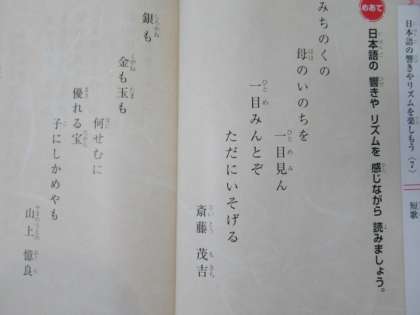 日本語の響きやリズムを楽しもう(7)
短歌
めあて
日本語の 響きや リズムを 感じながら 読みましょう。
みちのくの
母のいのちを
一目見ん
一目みんとぞ
ただにいそげる
斎藤 茂吉
銀も
金も玉も
何せむに
優れる宝
子にしかめやも
山上 憶良